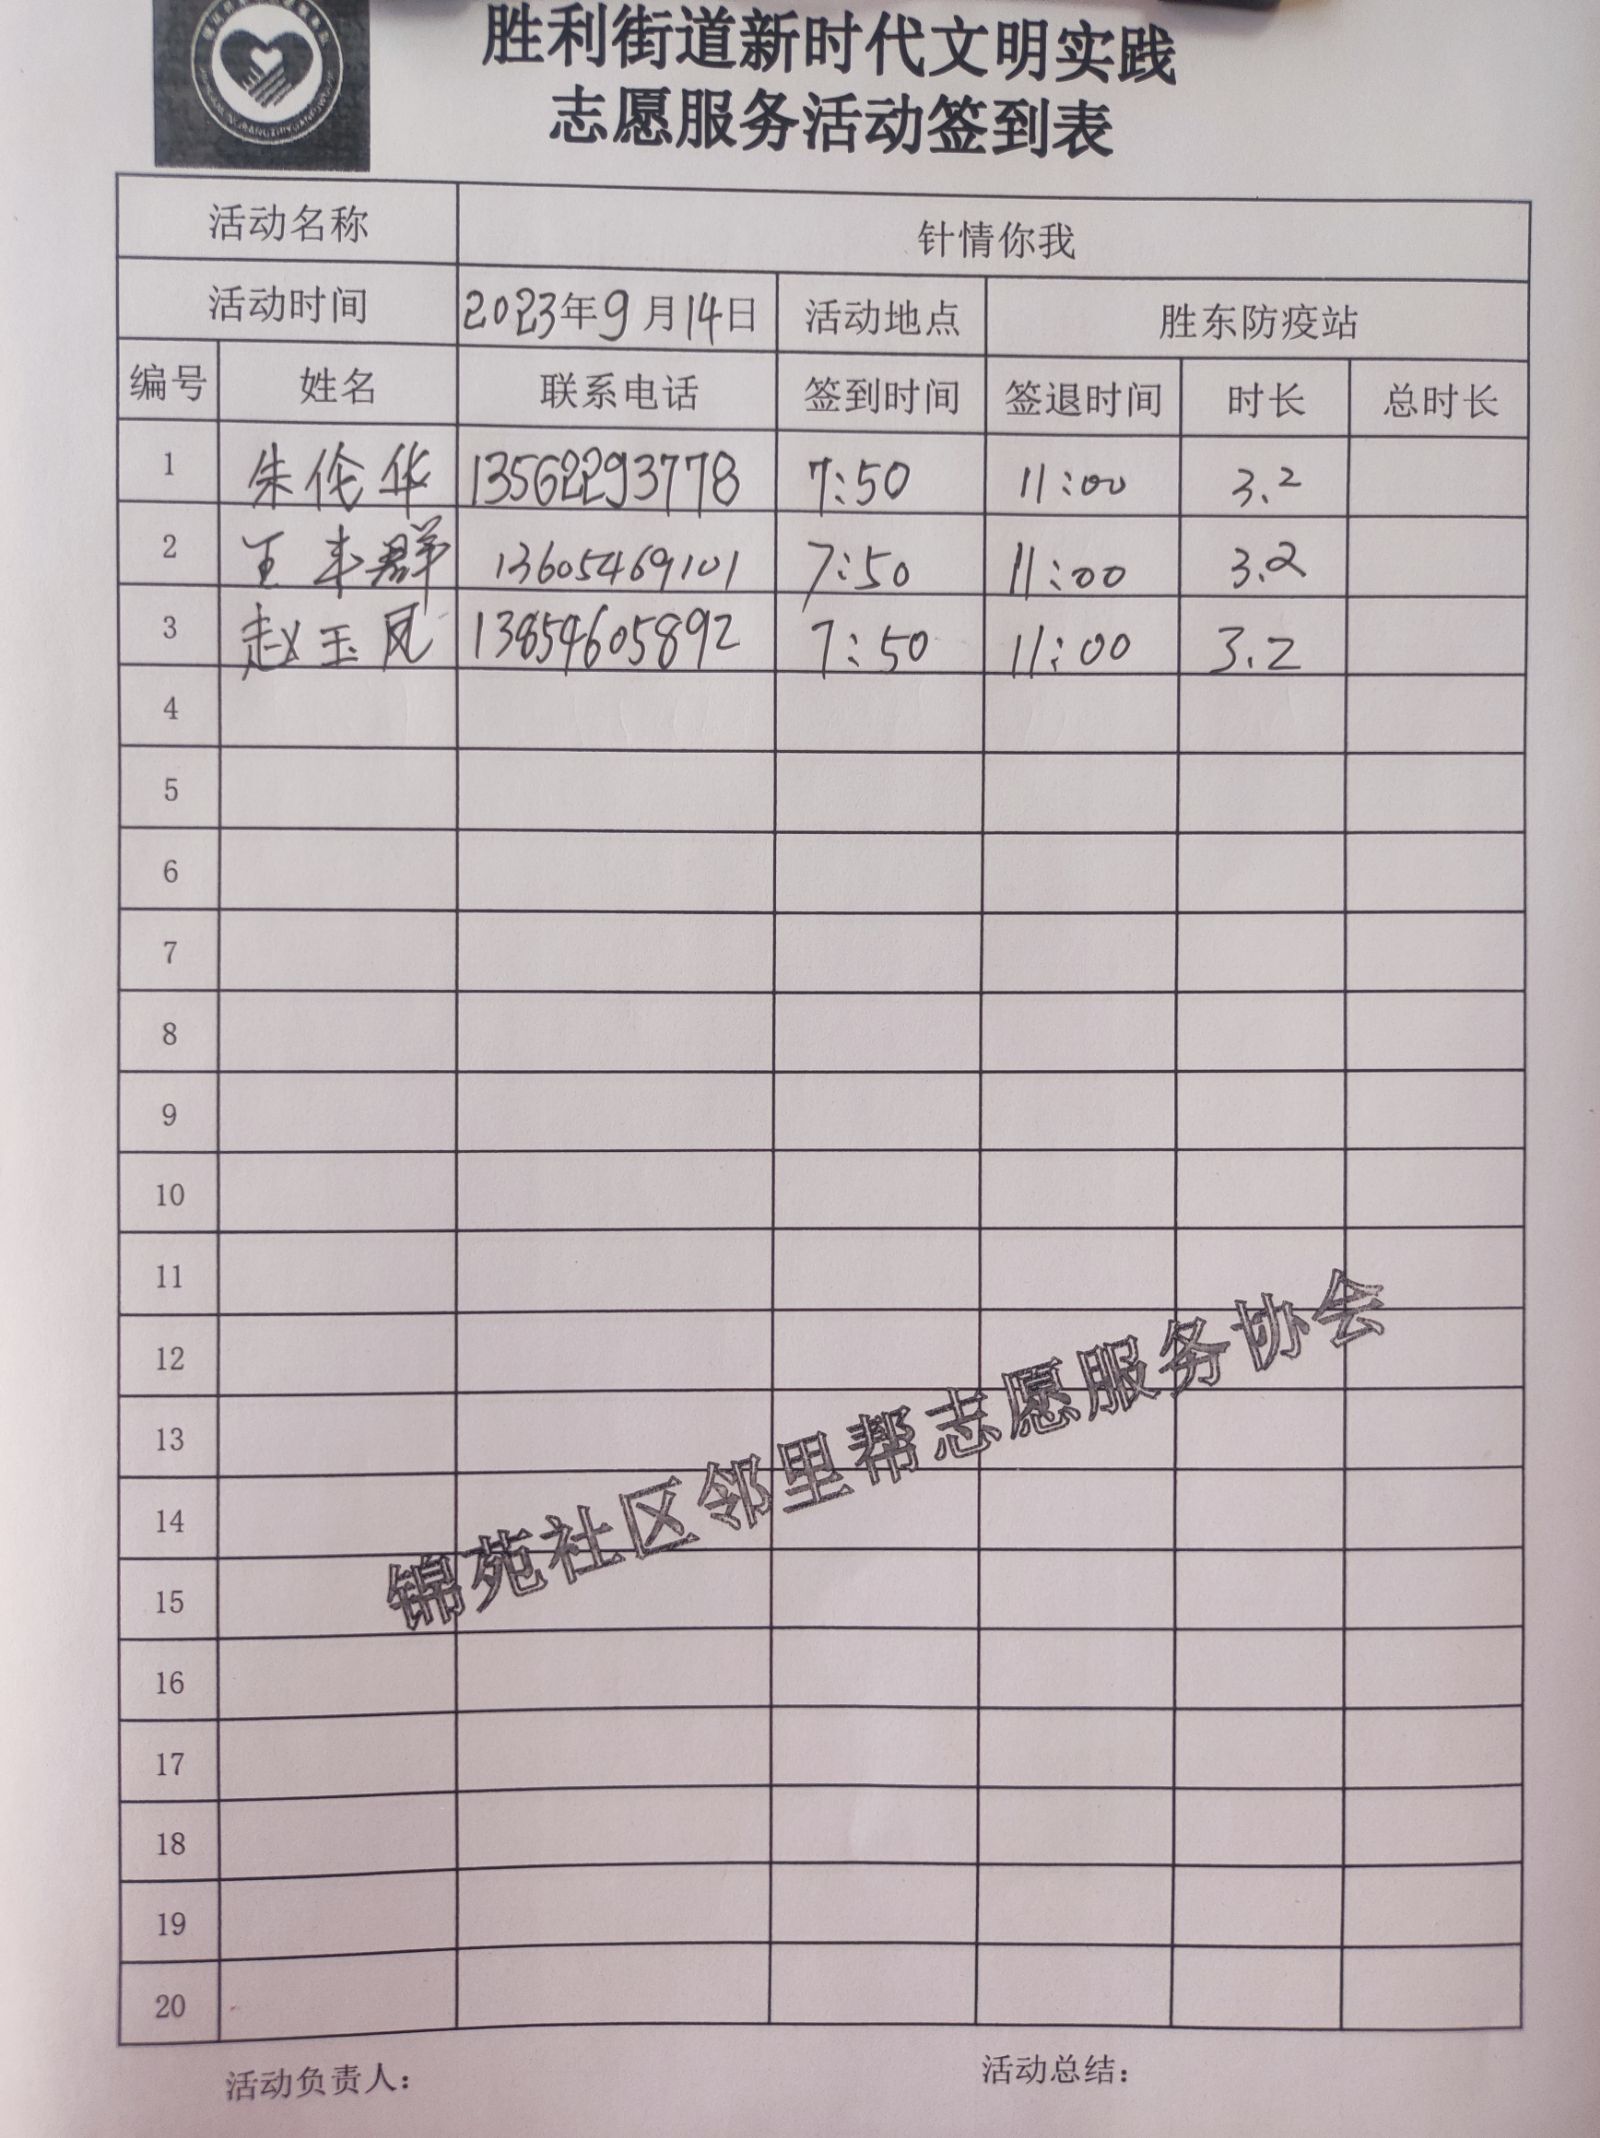 胜利街道新时代文明实践
志愿服务活动签到表
活动名称 针情你我
活动时间 2023年9月14日 活动地点 胜东防疫站
编号 姓名 联系电话 签到时间 签退时间 时长 总时长
1 朱伦华 13562293778 7:50 11:00 3.2
2 王丰群 13605469101 7:50 11:00 3.2
3 赵玉凤 13854605892 7:50 11:00 3.2
4
5
6
7
8
9
10
11
12
13
14
15
16
17
18
19
20
锦苑社区邻里帮志愿服务协会
活动负责人： 活动总结：